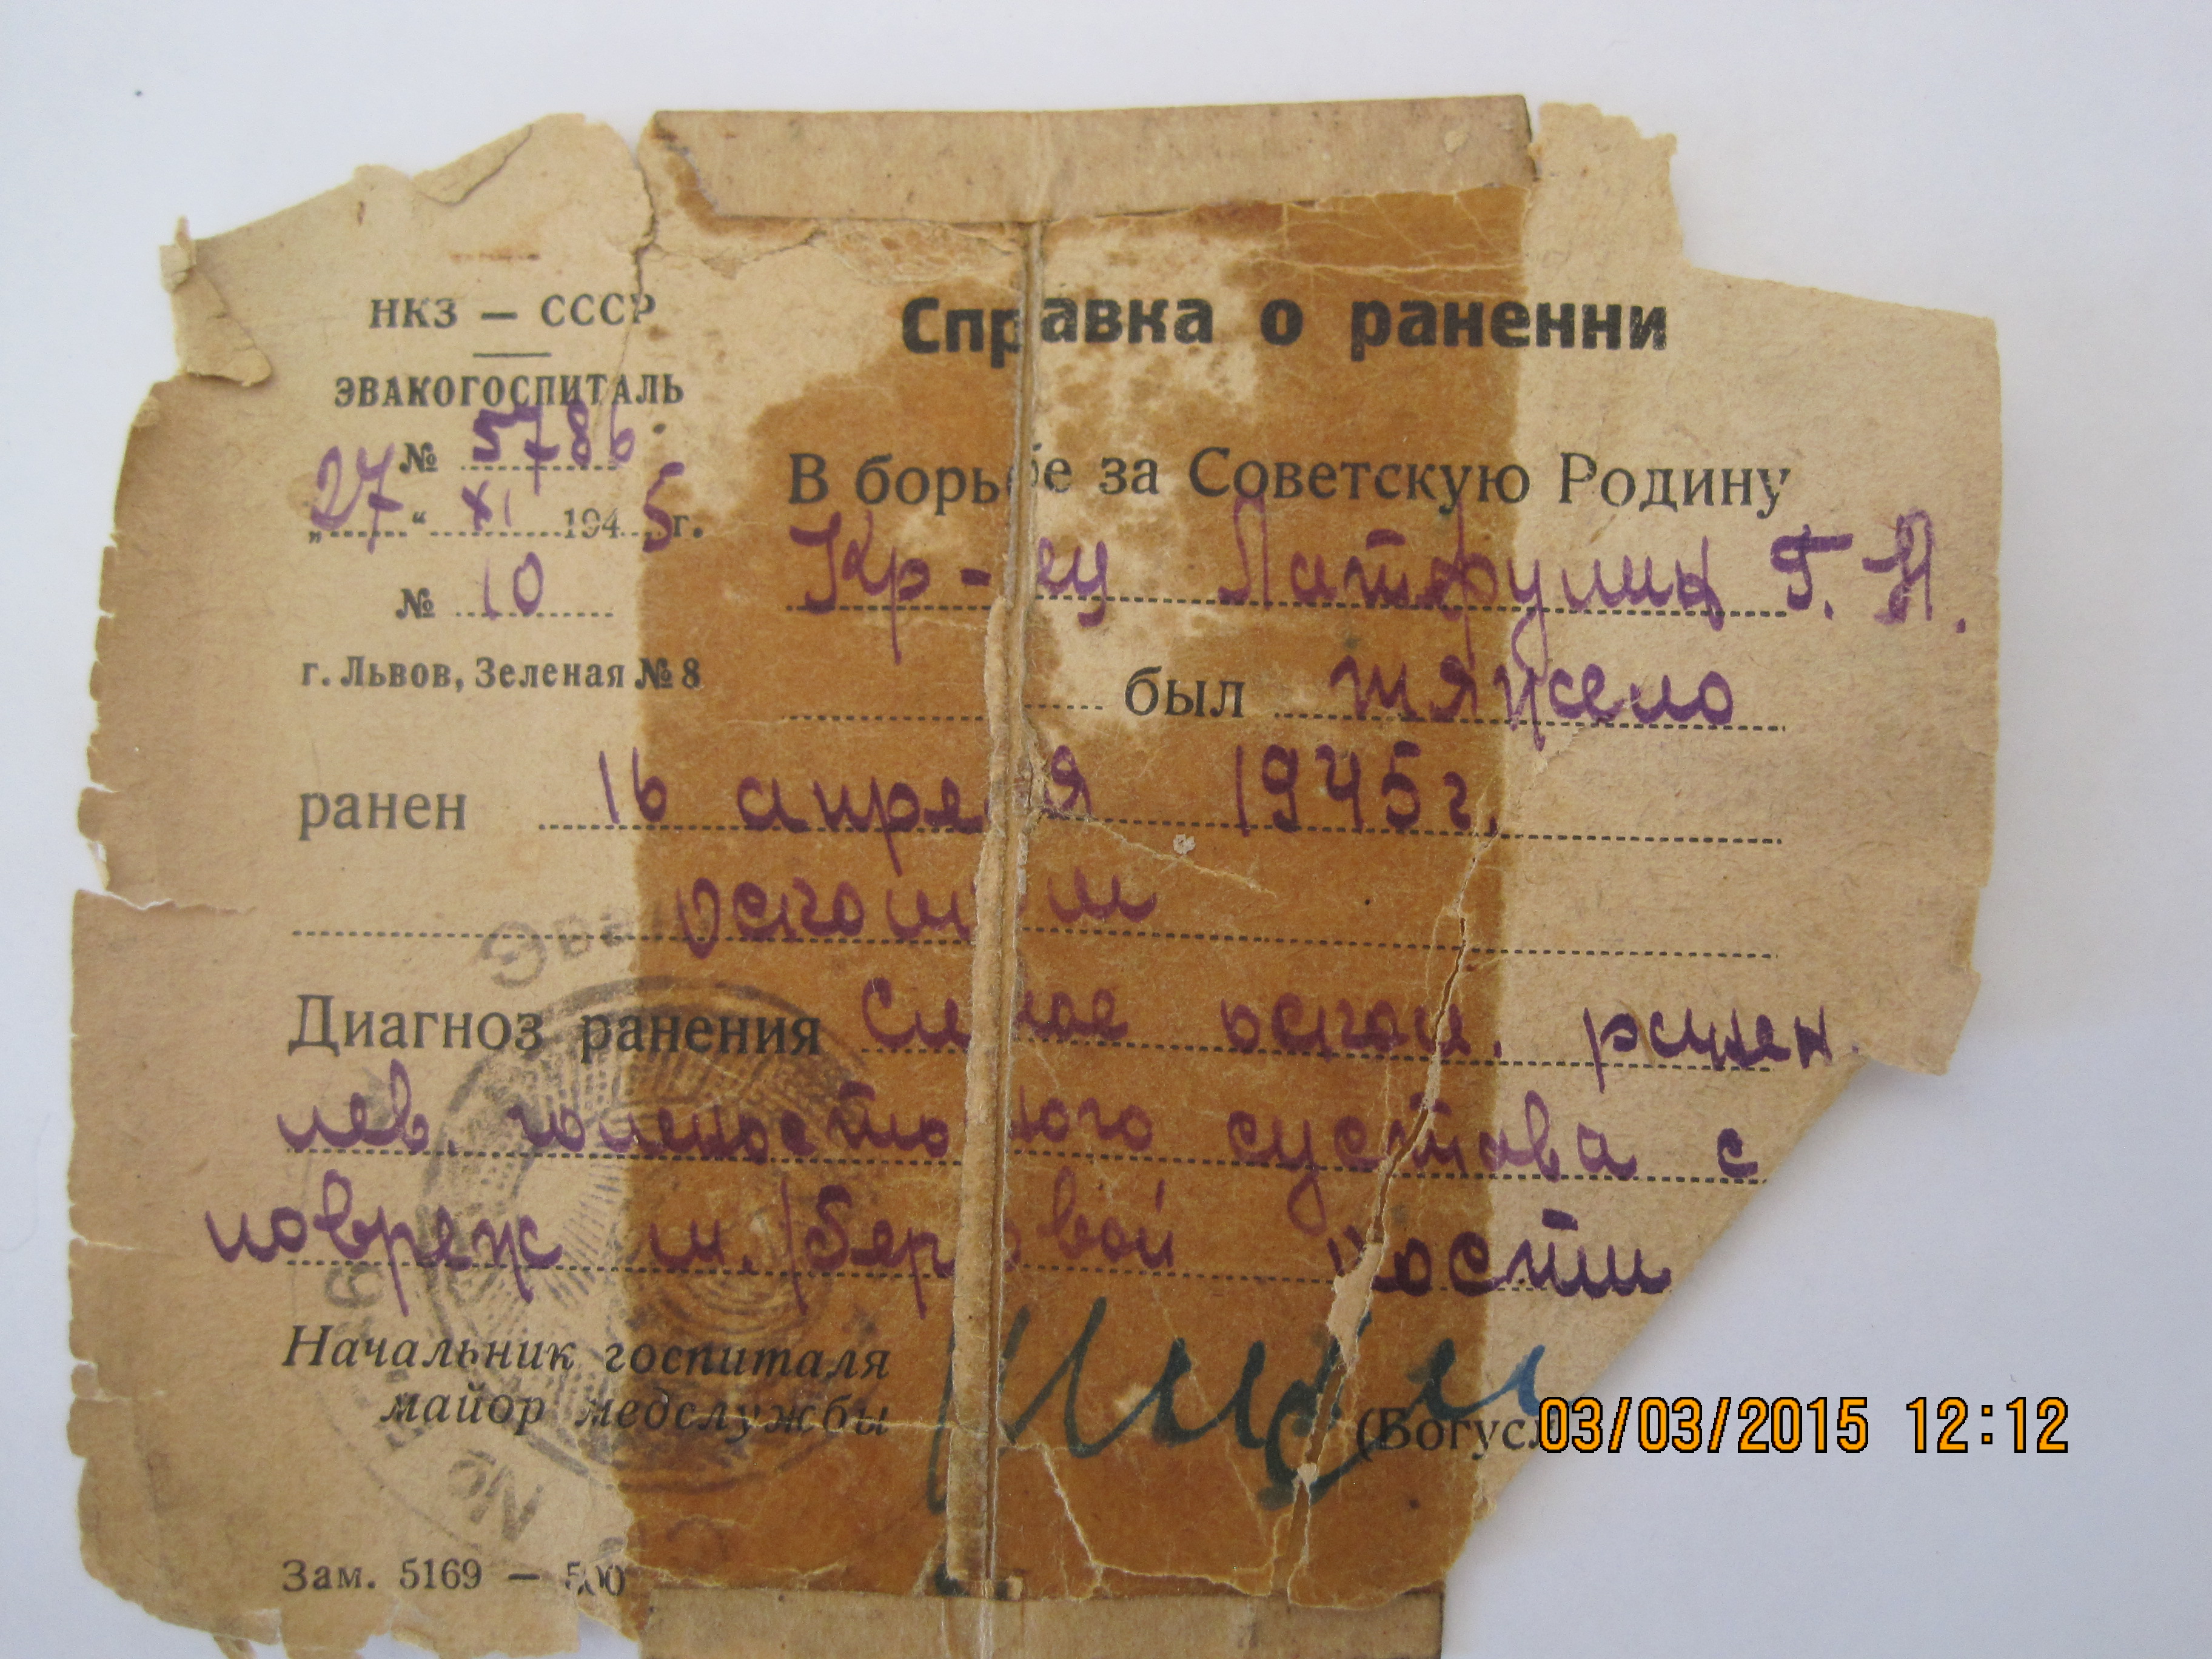 НКЗ — СССР
ЭВАКОГОСПИТАЛЬ
№ 5786
„27“ XI 1945 г.
№ 10
г. Львов, Зеленая № 8
Справка о раненни
В борьбе за Советскую Родину
Кр-ец Латфулин Г. Н.
был тяжело
ранен 16 апреля 1945 г.
осколком
Диагноз ранения Слепое оскол. ранен.
лев. голеностопного сустава с
повреж м/берцовой кости
Начальник госпиталя
майор медслужбы
(Богусл
Зам. 5169 — 500
03/03/2015 12:12